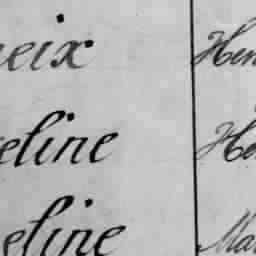 eix Hen
eline He
eline Mar